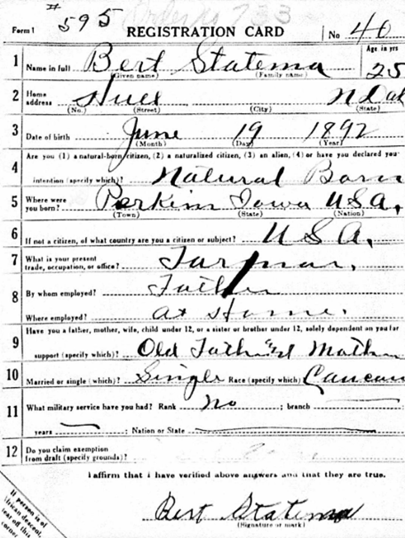 # 595 Order No 733
Form 1 REGISTRATION CARD No 40
1 Name in full Bert Statema Age in yrs 25
(Given name) (Family name)
2 Home address Hull N Dak
(No.) (Street) (City) (State)
3 Date of birth June 19 1892
(Month) (Day) (Year)
Are you (1) a natural-born citizen, (2) a naturalized citizen, (3) an alien, (4) or have you declared your
4 intention (specify which)? Natural Born
5 Where were you born? Perkins Iowa USA.
(Town) (State) (Nation)
6 If not a citizen, of what country are you a citizen or subject? USA.
7 What is your present trade, occupation, or office? Farmar.
8 By whom employed? Father
Where employed? at Home.
Have you a father, mother, wife, child under 12, or a sister or brother under 12, solely dependent on you for
9 support (specify which)? Old Father & Mother
10 Married or single (which)? Single Race (specify which) Caucas
11 What military service have you had? Rank No ; branch
years ; Nation or State
12 Do you claim exemption from draft (specify grounds)?
I affirm that I have verified above answers and that they are true.
Bert Statema
(Signature or mark)
If person is of
African descent,
tear off this
corner.